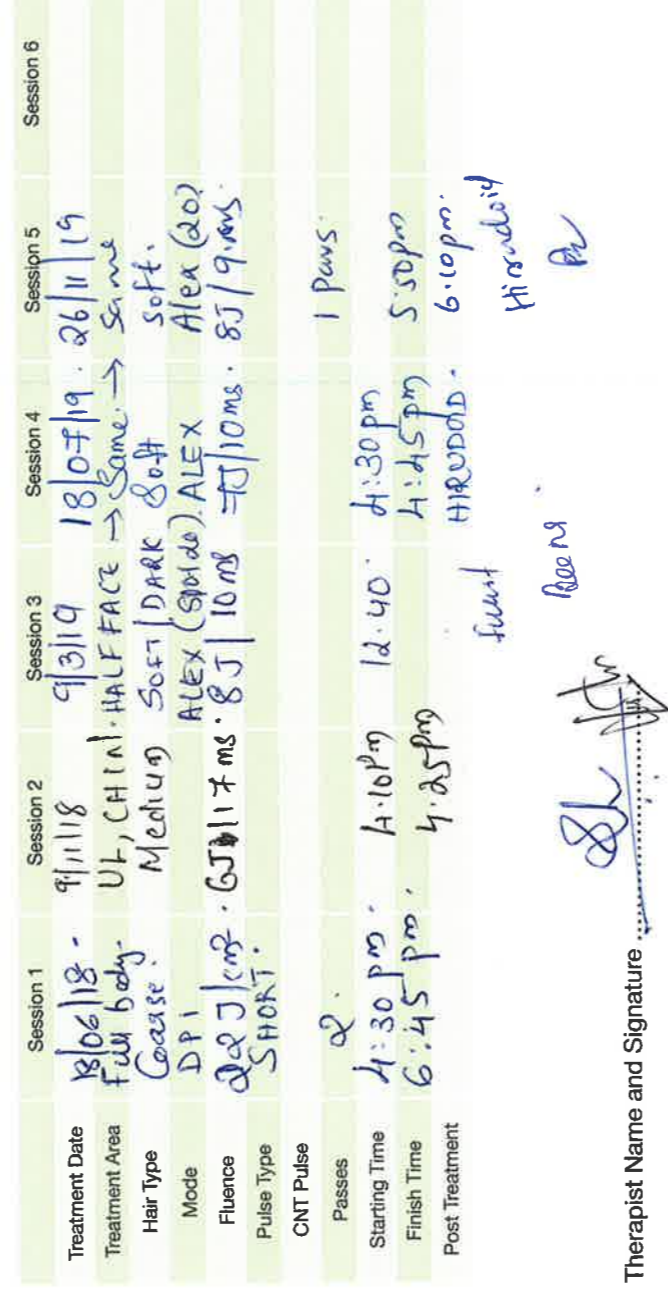 Session 1 Session 2 Session 3 Session 4 Session 5 Session 6
Treatment Date 18/06/18 - 9/11/18 9/3/19 18/07/19 . 26/11/19
Treatment Area Full body. UL, CHIN. HALF FACE → Same. → Same
Hair Type Coarse. Medium SOFT/DARK Soft Soft.
Mode DPI ALEX ALEX Alex (20)
Fluence 22 J/cm2 . 6J 17 ms . 8J/10 ms 7J/10ms . 8J/9 ms.
Pulse Type SHORT.
CNT Pulse
Passes 2 . 1 Pass.
Starting Time 4:30 pm . 4.10Pm 12.40 . 4:30pm 5.50pm
Finish Time 6:45 pm . 4.25Pm 4:45pm 6.10pm.
Post Treatment HIRUDOID . Hirudoid
Therapist Name and Signature